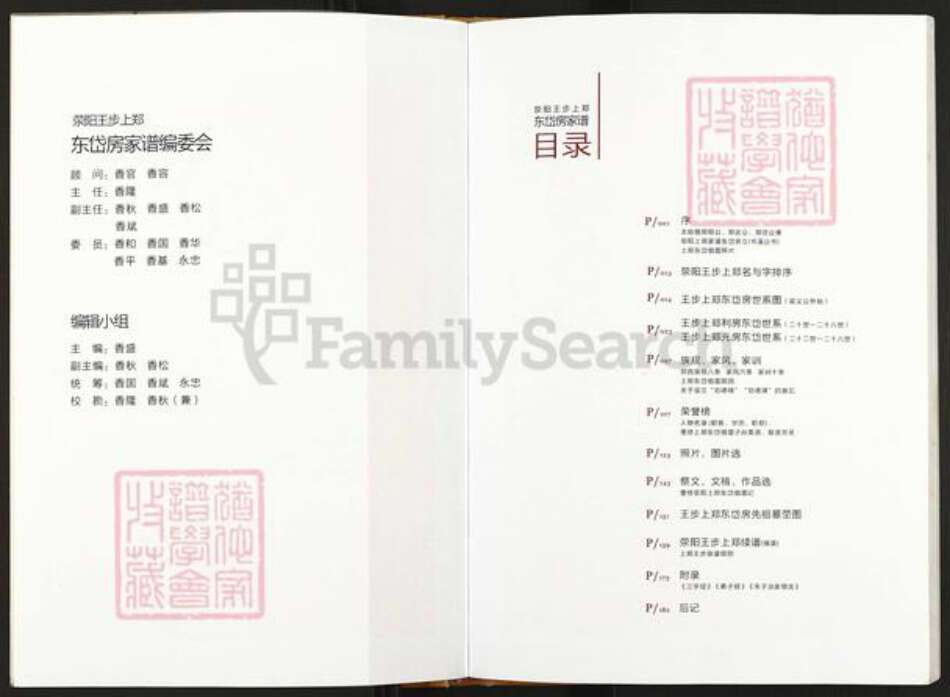 荥阳王步上郑
东岱房家谱编委会
顾 问：香官 香容
主 任：香隆
副主任：香秋 香盛 香松
香斌
委 员：香和 香国 香华
香平 香基 永忠
编辑小组
主 编：香盛
副主编：香秋 香松
统 筹：香国 香斌 永忠
校 勘：香隆 香秋（兼）
猶他家
譜學會
收藏
FamilySearch
荥阳王步上郑
东岱房家谱
目录
猶他家
譜學會
收藏
P/ 序
P/ 荥阳王步上郑名与字排序
P/ 王步上郑东岱房世系图
P/ 王步上郑利房东岱世系（二十世一二十八世）
王步上郑元房东岱世系（二十二世一二十八世）
P/ 族规、家风、家训
P/ 荣誉榜
P/ 照片、图片选
P/ 祭文、文稿、作品选
P/ 王步上郑东岱房先祖墓茔图
P/ 荥阳王步上郑续谱
P/ 附录
《三字经》《弟子规》《朱子治家格言》
P/ 后记